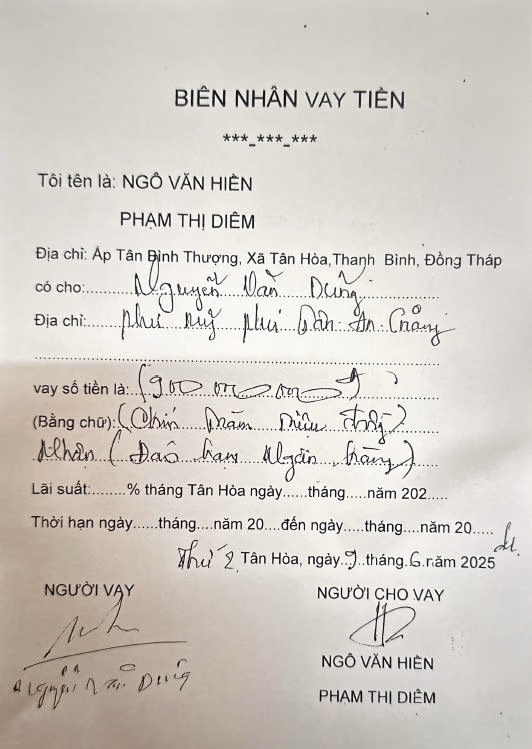 BIÊN NHÂN VAY TIỀN
***_***_***
Tôi tên là: NGÔ VĂN HIỀN
PHẠM THỊ DIÊM
Địa chỉ: Ấp Tân Bình Thượng, Xã Tân Hòa,Thanh Bình, Đồng Tháp
có cho: Nguyễn Văn Dũng
Địa chỉ: Phú Mỹ Phú Tân An Giang
vay số tiền là: (900 000 000 đ)
(Bằng chữ): (Chín Trăm Triệu đồng)
Nhận (Đáo hạn Ngân hàng)
Lãi suất:........% tháng Tân Hòa ngày......tháng......năm 202.....
Thời hạn ngày......tháng....năm 20....đến ngày......tháng....năm 20.....
Thứ 2, Tân Hòa, ngày..9..tháng.6.năm 2025
NGƯỜI VAY
NGƯỜI CHO VAY
Nguyễn Văn Dũng
NGÔ VĂN HIỀN
PHẠM THỊ DIÊM